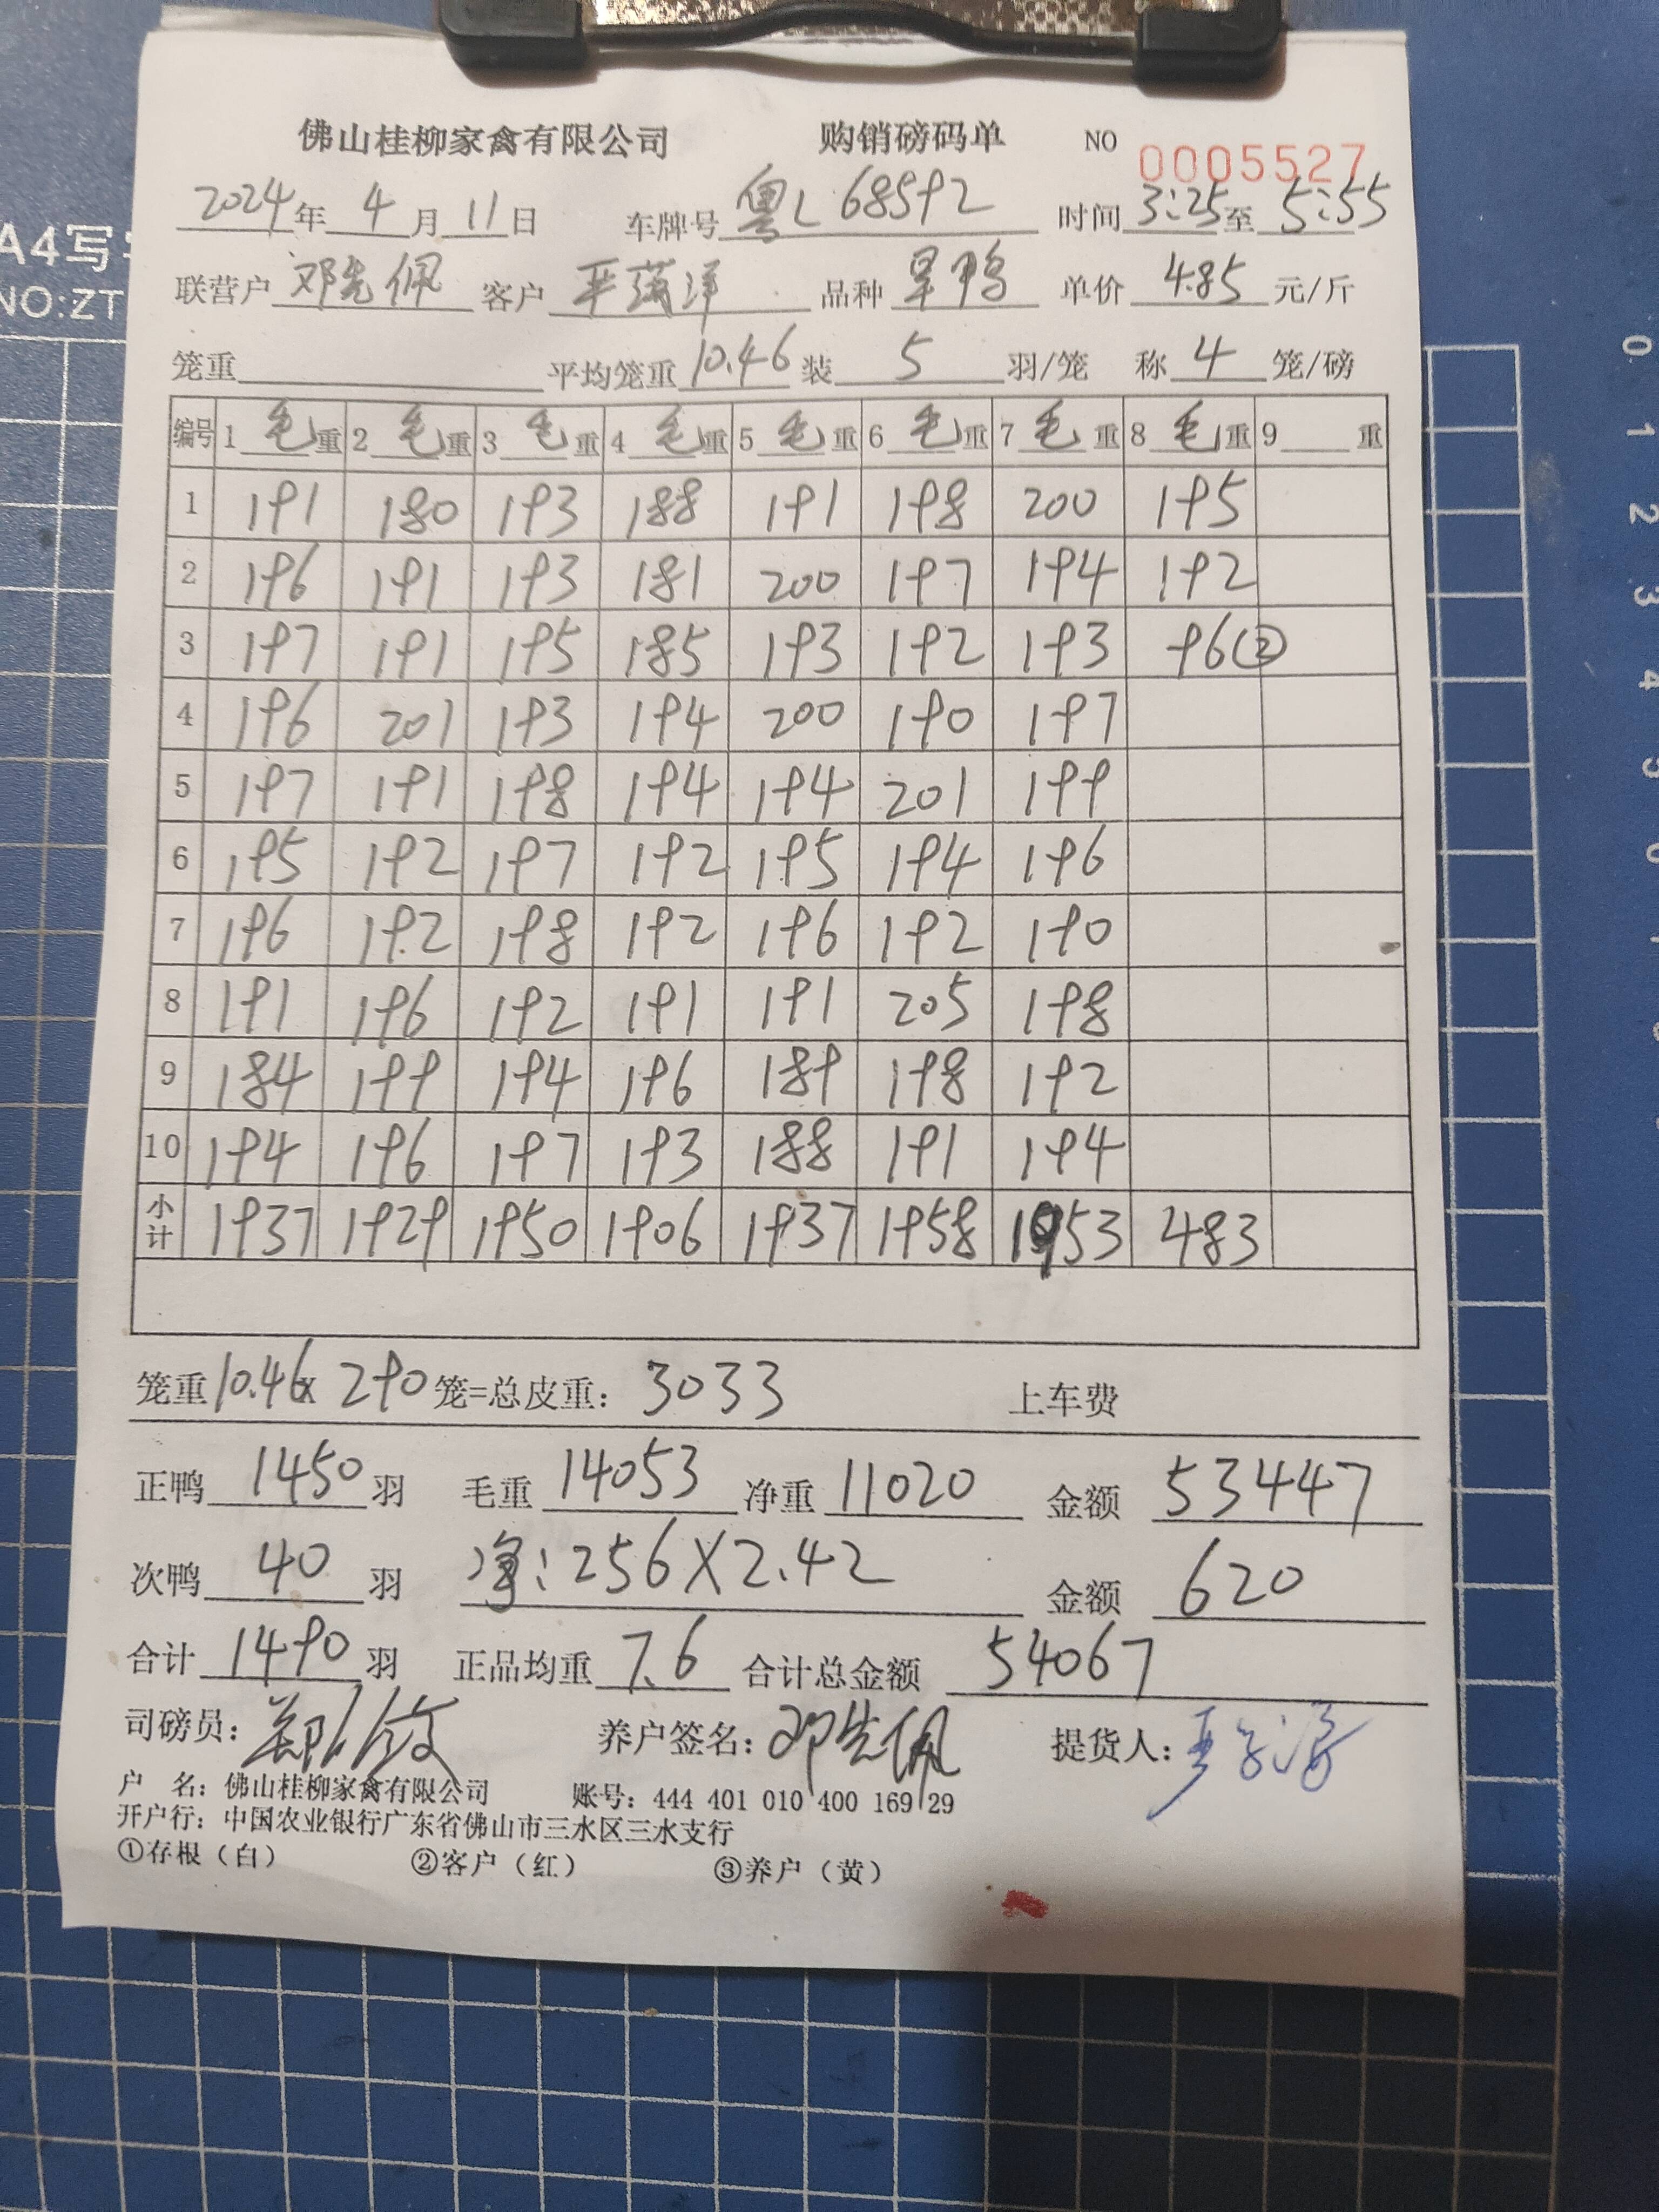 佛山桂柳家禽有限公司 购销磅码单 NO 0005527
2024年 4月 11日 车牌号 粤L 68592 时间 3:25至 5:55
A4写
联营户 邓先佩 客户 品种 旱鸭 单价 4.85 元/斤
NO:ZT
笼重 平均笼重 10.46 装 5 羽/笼 称 4 笼/磅
编号 1 毛重 2 毛重 3 毛重 4 毛重 5 毛重 6 毛重 7 毛重 8 毛重 9 重
1 191 180 193 188 191 198 200 195
2 196 191 193 181 200 197 194 192
3 197 191 195 185 193 192 193 96②
4 196 201 193 194 200 190 197
5 197 191 198 194 194 201 199
6 195 192 197 192 195 194 196
7 196 192 198 192 196 192 190
8 191 196 192 191 191 205 198
9 184 199 194 196 189 198 192
10 194 196 197 193 188 191 194
小计 1937 1929 1950 1906 1937 1958 1953 483
笼重10.46x 290笼=总皮重: 3033 上车费
正鸭 1450 羽 毛重 14053 净重 11020 金额 53447
次鸭 40 羽 净:256X2.42 金额 620
合计 1490 羽 正品均重 7.6 合计总金额 54067
司磅员: 养户签名: 邓先佩 提货人:
户 名: 佛山桂柳家禽有限公司 账号: 444 401 010 400 169 29
开户行: 中国农业银行广东省佛山市三水区三水支行
①存根(白) ②客户(红) ③养户(黄)
0
1
2
3
4
5
6
7
8